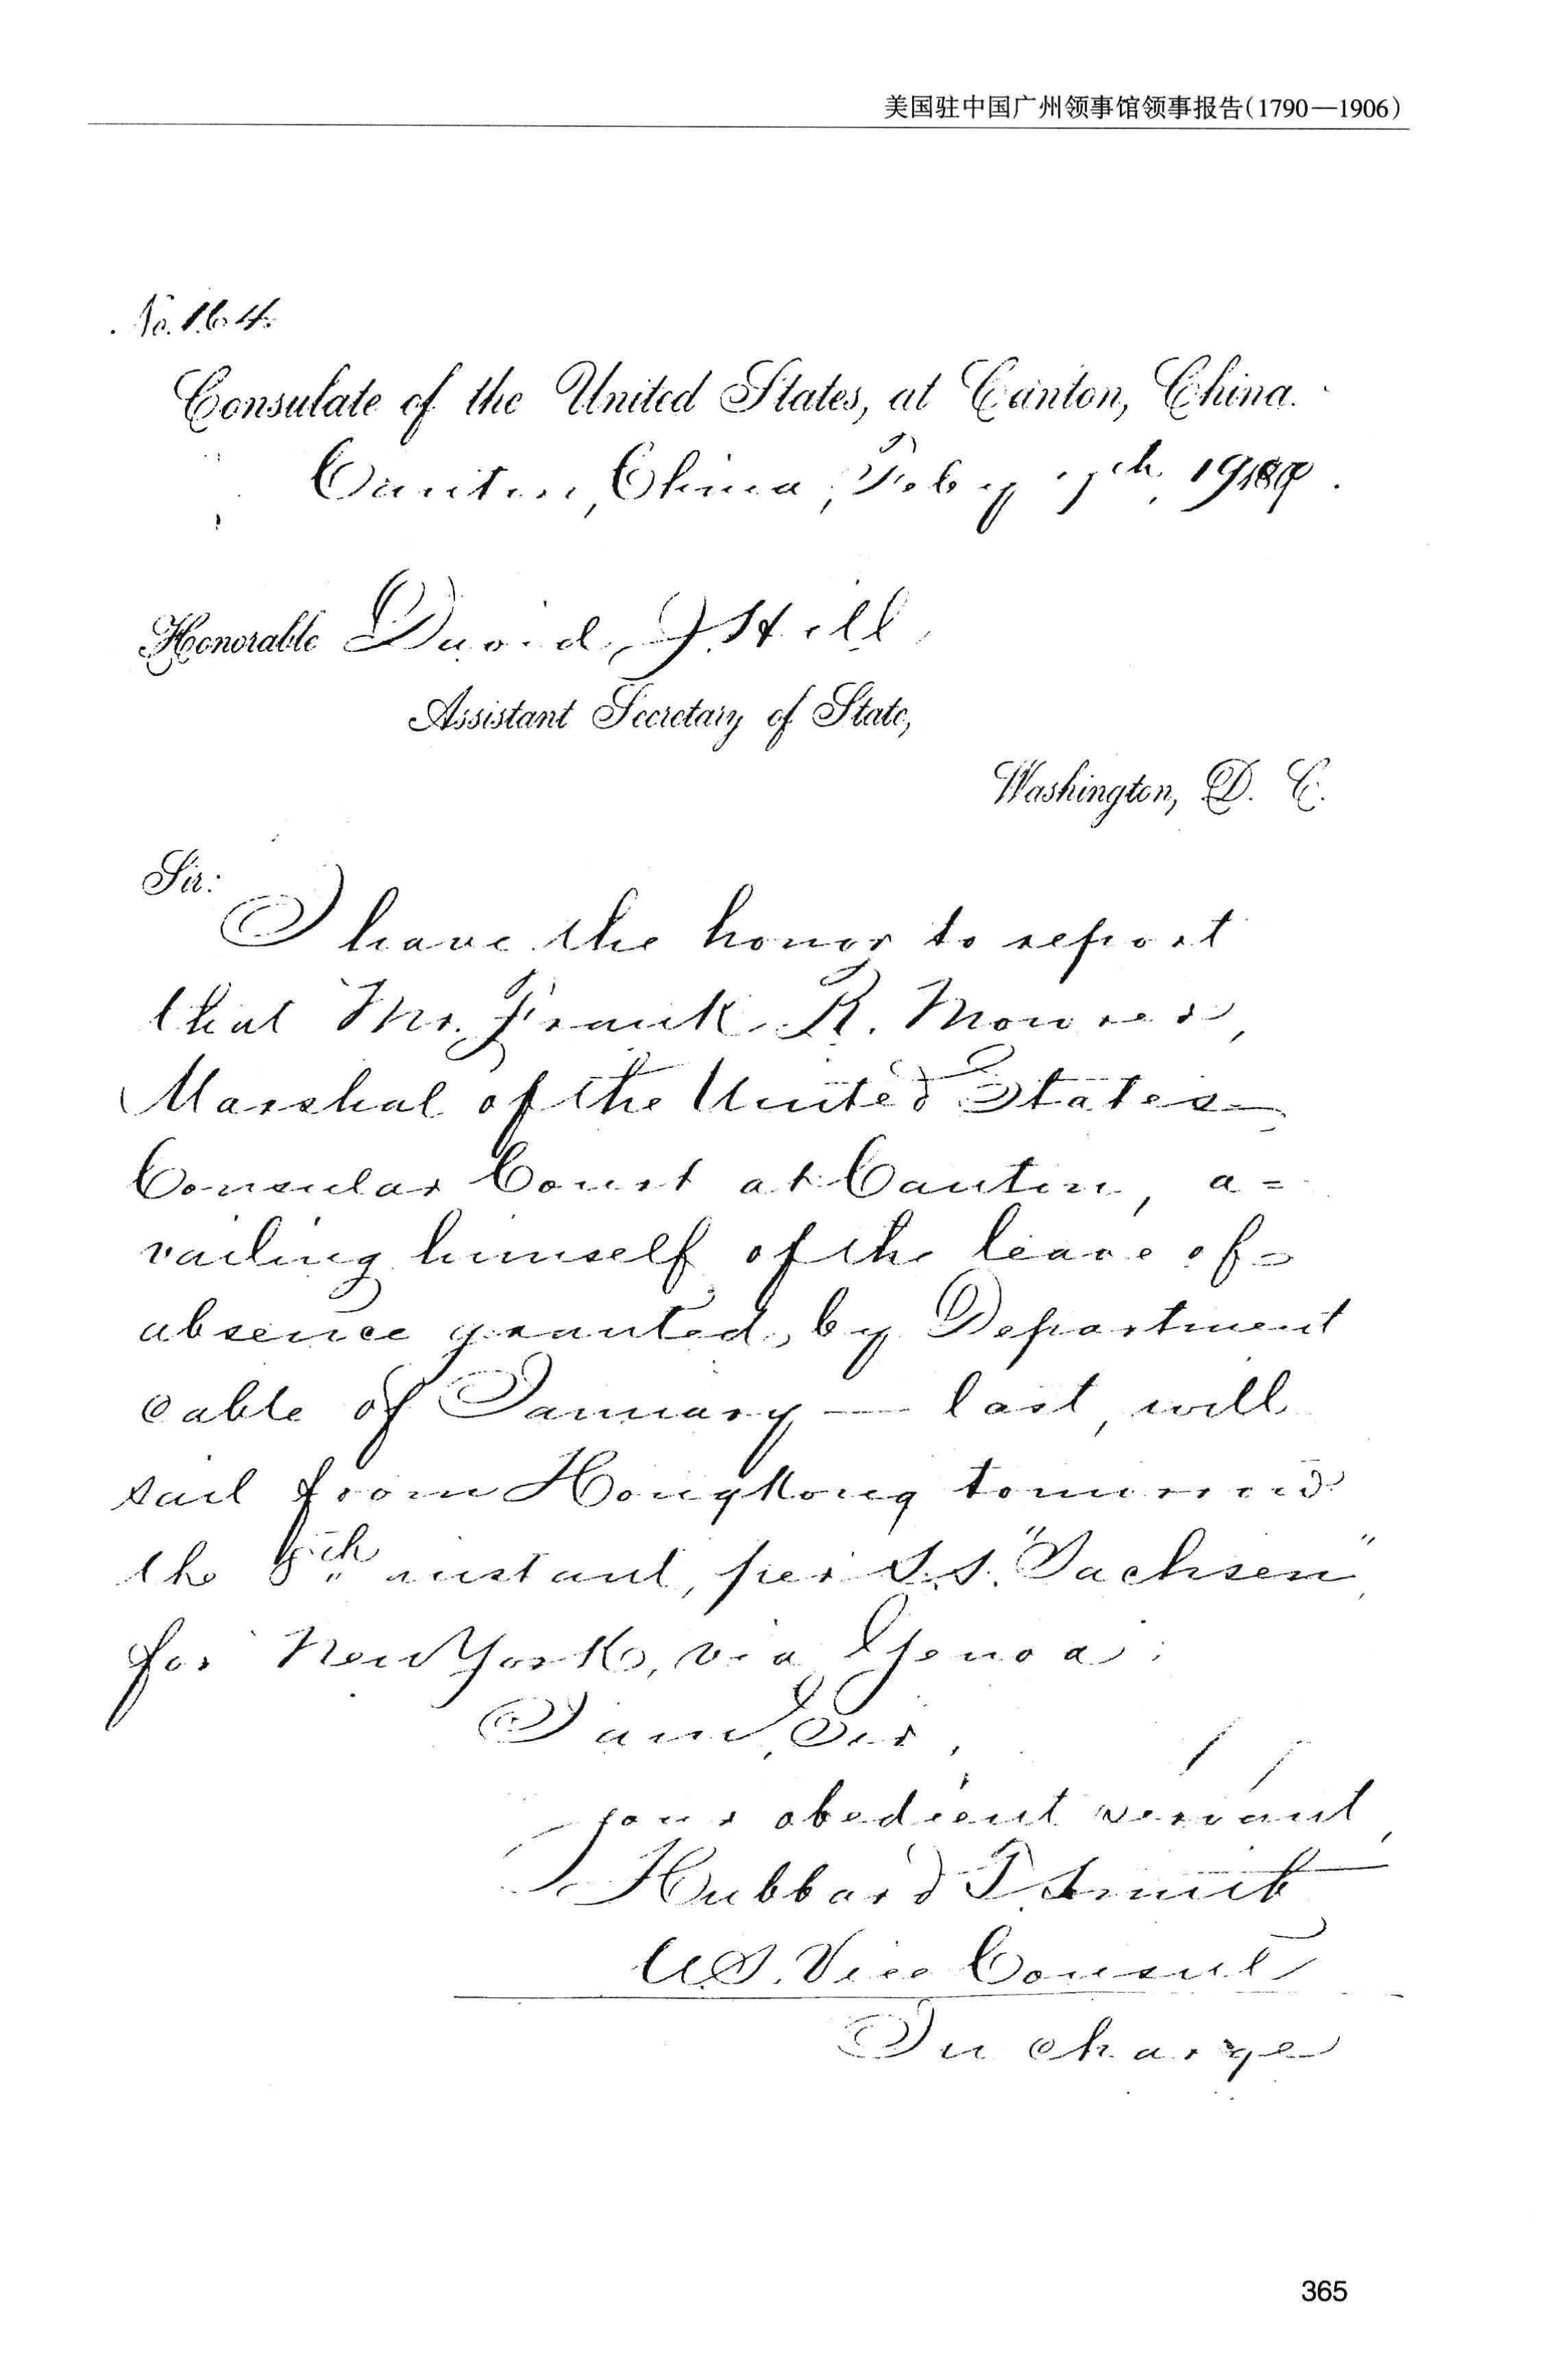 美国驻中国广州领事馆领事报告(1790—1906)
No. 164.
Consulate of the United States, at Canton, China.
Canton, China, Feby 7th, 19
Honorable David J. Hill,
Assistant Secretary of State,
Washington, D. C.
Sir:
I have the honor to report
that Mr. Frank R. Mowrer,
Marshal of the United States
Consular Court at Canton, a=
vailing himself of the leave of=
absence granted, by Department
cable of January — last, will
sail from HongKong tomorrow
the 8th instant, per S.S. "Sachsen",
for New York, via Genoa.
I am, Sir,
your obedient servant,
Hubbard T. Smith
U.S. Vice Consul
In charge
365